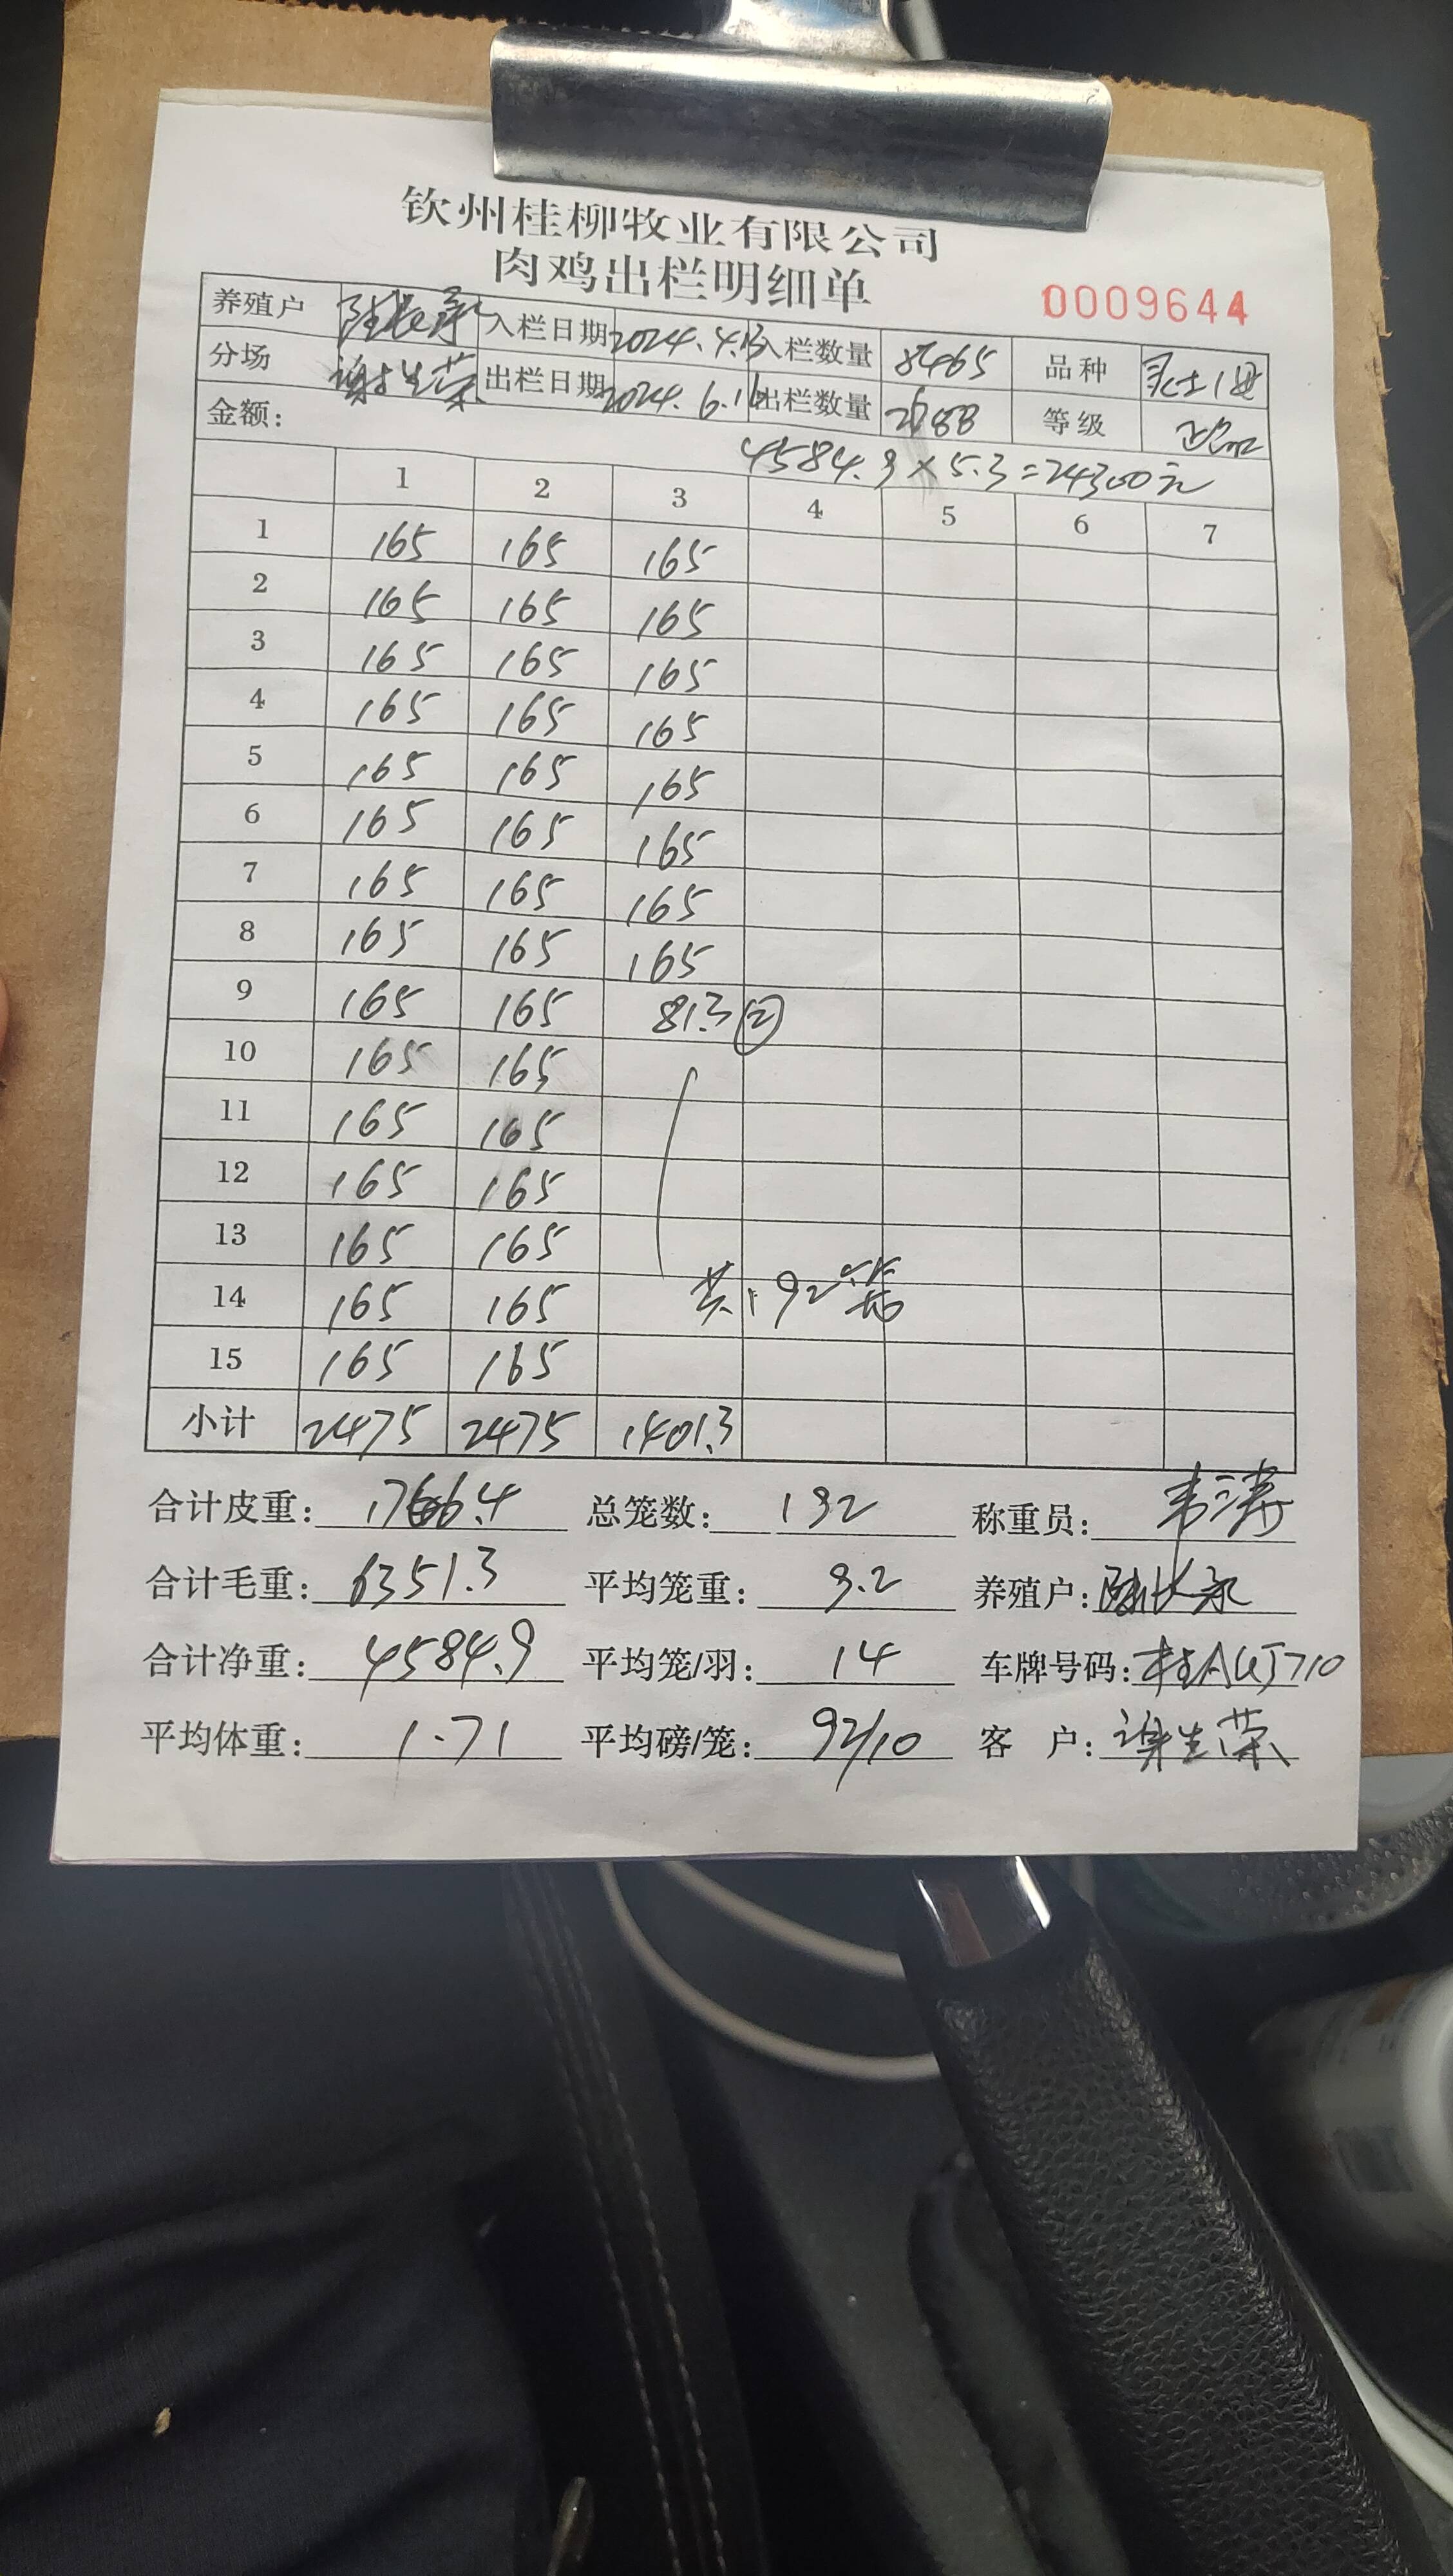 钦州桂柳牧业有限公司
肉鸡出栏明细单
0009644
养殖户 入栏日期 2024.4.13 入栏数量 8465 品种
分场 谢生荣 出栏日期 2024.6.16 出栏数量 2688 等级 正品
金额: 4584.9×5.3=24300元
1 2 3 4 5 6 7
1 165 165 165
2 165 165 165
3 165 165 165
4 165 165 165
5 165 165 165
6 165 165 165
7 165 165 165
8 165 165 165
9 165 165 81.3 ②
10 165 165
11 165 165
12 165 165
13 165 165
14 165 165 共192笼
15 165 165
小计 2475 2475 1401.3
合计皮重: 1766.4 总笼数: 192 称重员: 韦涛
合计毛重: 6351.3 平均笼重: 9.2 养殖户:
合计净重: 4584.9 平均笼/羽: 14 车牌号码:
平均体重: 1.71 平均磅/笼: 92/10 客 户: 谢生荣